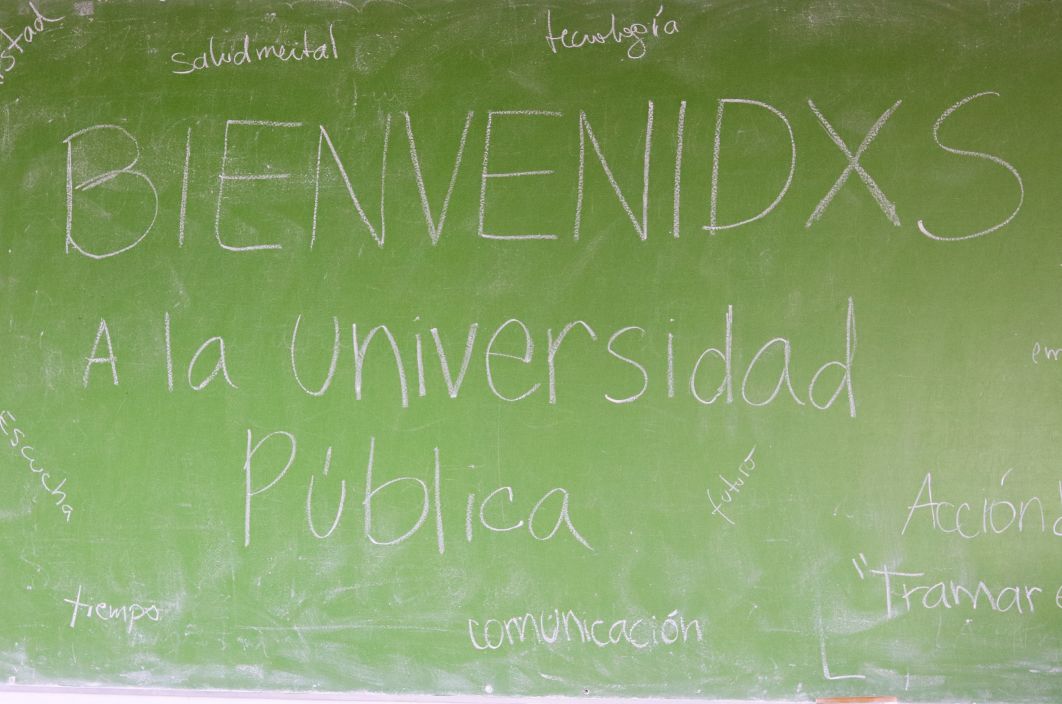 salud mental
tecnología
BIENVENIDXS
A la Universidad
Pública
Escucha
futuro
Acción
"Tramar
tiempo
comunicación